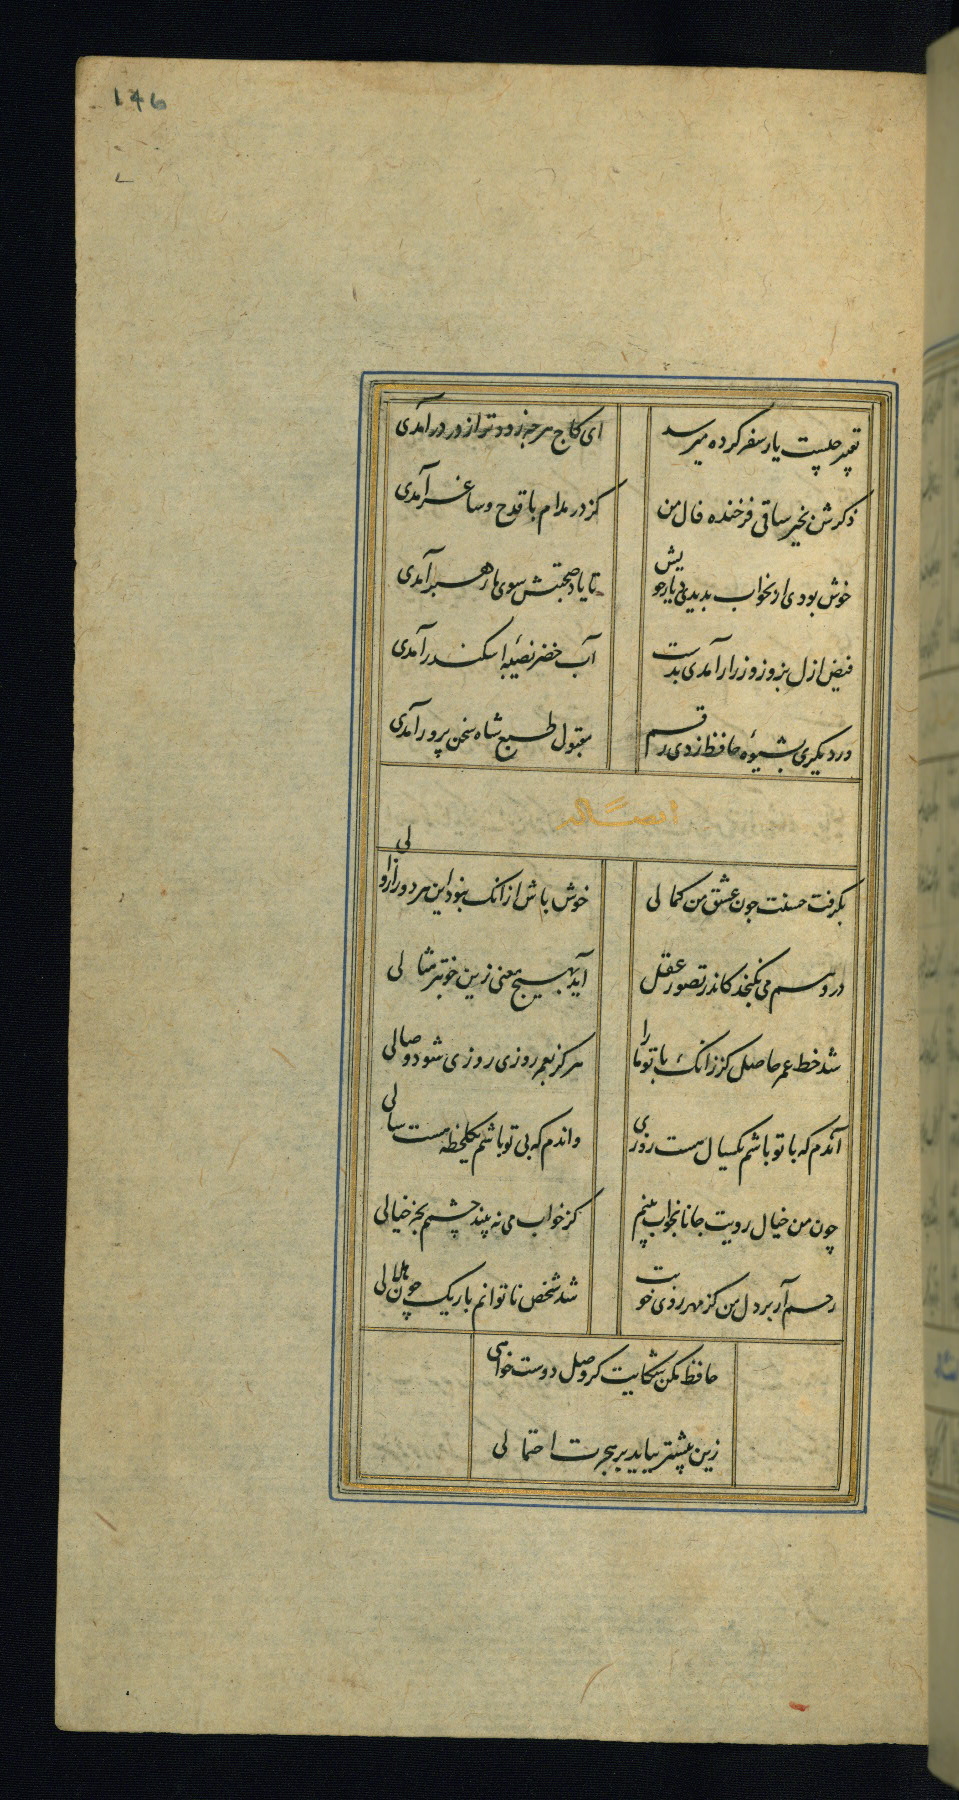 146
تعبیر چیست یار سفر کرده میرسد
ای کاج هرچه زودتر از در درآمدی
ذکرش بخیر ساقی فرخنده فال من
کز در مدام با قدح و ساغر آمدی
خوش بودی ار بخواب بدیدی دیار خویش
تا یاد صحبتش سوی ما رهبر آمدی
فیض ازل بزور و زر ار آمدی بدست
آب خضر نصیبهٔ اسکندر آمدی
ور دیگری بشیوهٔ حافظ زدی رقم
مقبول طبع شاه سخن پرور آمدی
ایضاً له
بگرفت حسنت چون عشق من کمالی
خوش باش از آنک نبود این هر دو را زوالی
در وهم می نگنجد کاندر تصور عقل
آید بهیچ معنی زین خوبتر مثالی
شد خط عمر حاصل کر زانک با تو ما را
هرکز بعمر روزی روزی شود وصالی
آندم که با تو باشم یکسال هست روزی
واندم که بی تو باشم یکلحظه هست سالی
چون من خیال رویت جانا بخواب بینم
کز خواب می نه بیند چشمم بجز خیالی
رحم آر بر دل من کز مهر روی خوبت
شد شخص ناتوانم باریک چون هلالی
حافظ مکن شکایت کر وصل دوست خواهی
زین بیشتر بباید بر هجرت احتمالی